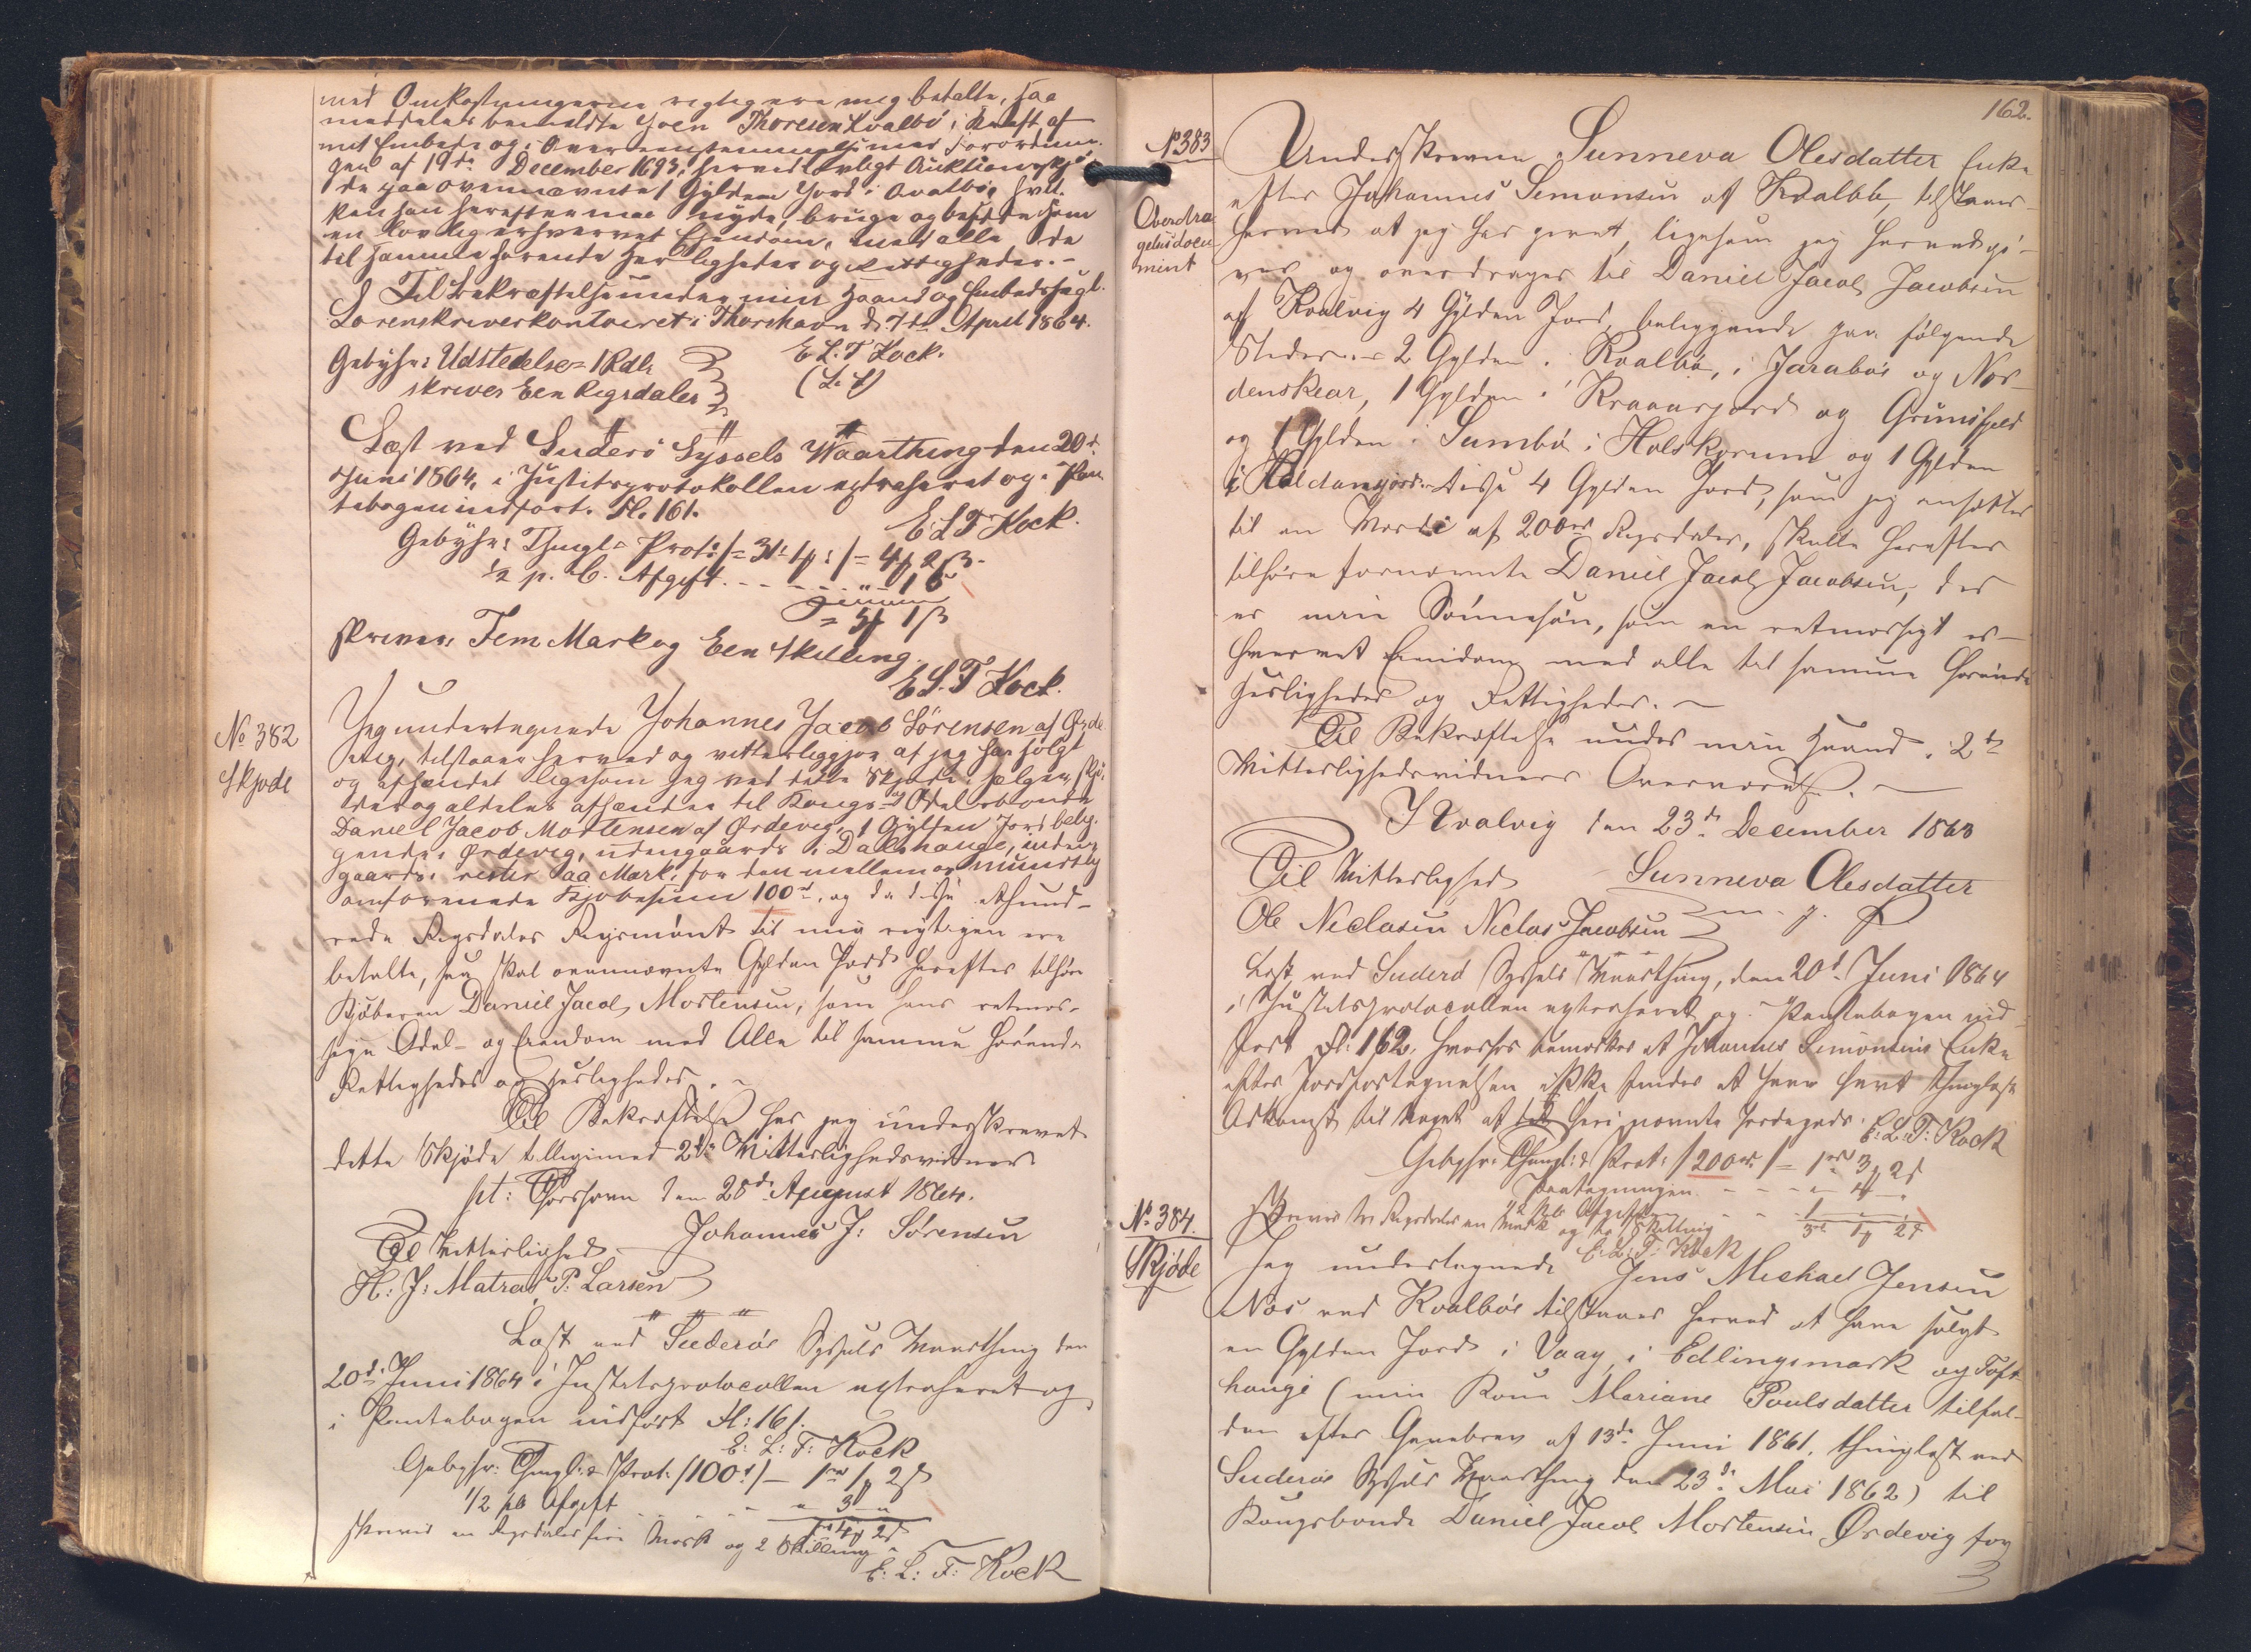 med Omkostningerne rigtig ere mig betalte, saa
meddeles bemeldte Joen Thoresen Kvalbö, i Kraft af
mit Embede og i Overensstemmelse med Forordnin-
gen af 19de December 1693, herved lovligt Auktionsskjö-
de paa ovennævnte 1 Gylden Jord i Qvalböe, hvil-
ken han herefter maa nyde, bruge og besidde som
en lovlig erhvervet Ejendom, med alle de
til samme hörende Herligheder og Rettigheder.-
Til Bekræftelse under min Haand og Embedssegl.
Sorenskriverkontoiret i Thorshavn d. 7de April 1864.
Gebyhr: Udstedelse = 1 Rdlr E. L. T Kock.
skriver Een Rigsdaler (L. S)
Læst ved Suderö Syssels Waarthing den 20d
Juni 1864, i Justitsprotokollen extraheret og i Pan-
tebogen indfört. Fl. 161.
E. L T Kock.
Gebyhr: Thingl. & Prot: = 4 2 ß.
½ p. C. Afgift
= 5 1 ß
skriver Fem Mark og Een Skilling.
E L. T Kock.
No 382
Skjöde
Jeg undertegnede Johannes Jacob Sörensen af Örde-
vig, tilstaaer herved og vitterliggjör at jeg har solgt
og afhændet ligesom jeg ved dette Skjöde sælger, skjö-
der og aldeles afhænder til Kongs- og Odelsbonde
Daniel Jacob Mortensen af Ördevig, 1 Gylden Jord belig-
gende i Ördevig, udengaards i Dalshauge, inden-
gaards i Mark, for den mellem os mundtlig
omforenede Kjöbesum 100rd, og da disse Ethund-
rede Rigsdaler Rigsmönt til mig rigtigen ere
betalte, saa skal ovennævnte Gylden Jord herefter tilhöre
Kjöberen Daniel Jacob Mortensen, som hans retmæs-
sige Odel- og Eiendom med Alle til samme hörende
Rettigheder og Herligheder.
Til Bekræftelse har jeg underskrevet
dette Skjöde tilligemed 2de Vitterlighedsvidner
pt: Thorshavn den 28de August 1864.
Til Vitterlighed Johannes J: Sörensen
H: J: Matras P: Larsen
Læst ved Suderöe Syssels Vaarthing den
20de Juni 1864 i Justitsprotocollen extraheret og
i Pantebogen indfört Fl: 161.
E: L: T: Kock
Gebyhr: Thingl: & Prot: /100d/ – 1rd 1 2 ß
1/2 pc Afgift 3
skriver en Rigsdaler fire Mark og 2 Skilling
E: L: T: Kock
162.
No 383
Overdra-
gelsesdocu-
ment
Underskrevne Sunneva Olesdatter Enke
efter Johannes Simonsen af Kvalbö, tilstaaer
herved at jeg har givet, ligesom jeg herved gi-
ver og overdrager til Daniel Jacob Jacobsen
af Kvalvig 4 Gylden Jord, beliggende paa fölgende
Steder: – 2 Gylden i Kvalbö, i Jaraböe og Nor-
denskear, 1 Gylden i og Grimsfjeld
og 1 Gylden i Sumbö i Holskorum og 1 Gylden
i Disse 4 Gylden Jord, som jeg ansætter
til en Værdi af 200rd Rigsdaler, skulle herefter
tilhöre fornævnte Daniel Jacob Jacobsen, der
er min Sönnesön, som en retmæssigt er-
hvervet Eiendom med alle til samme hörende
Herligheder og Rettigheder. –
Til Bekræftelse under min Haand i 2de
Vitterlighedsvidners Overværelse. –
Kvalvig den 23de December 1863
Til Vitterlighed Sunneva Olesdatter
Ole Niclasen Niclas Jacobsen m. f. P
Læst ved Suderö Syssels Vaarthing, den 20d Juni 1864
i Justitsprotocollen extraheret og i Pantebogen ind-
fört Fl: 162, hvorhos bemærkes at Johannes Simonsens Enke
efter Jordfortegnelsen ikke findes at have havt thinglæst
Adkomst til noget af det heri nævnte Jordegods. E: L: T: Kock
Gebyhr: Thingl: & Prot: /200rd/ = 1rd 3 2 ß
Paategningen 4
½ pc Afgift 1
skriver tre Rigsdaler en Mark og to Skilling 3rd 1 2 ß
E: L: T: Kock
No 384.
Skjöde
Jeg undertegnede Jens Michael Jensen
Næs ved Kvalböe tilstaaer herved at have solgt
en Gylden Jord i Vaag, i Edlingsmark og Toft-
hauge (min Kone Mariane Poulsdatter tilfal-
den efter Gavebrev af 13de Juni 1861, thinglæst ved
Suderöe Syssels Vaarthing den 23de Mai 1862) til
Kongsbonde Daniel Jacob Mortensen Ördevig for